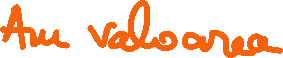 Am valoarea